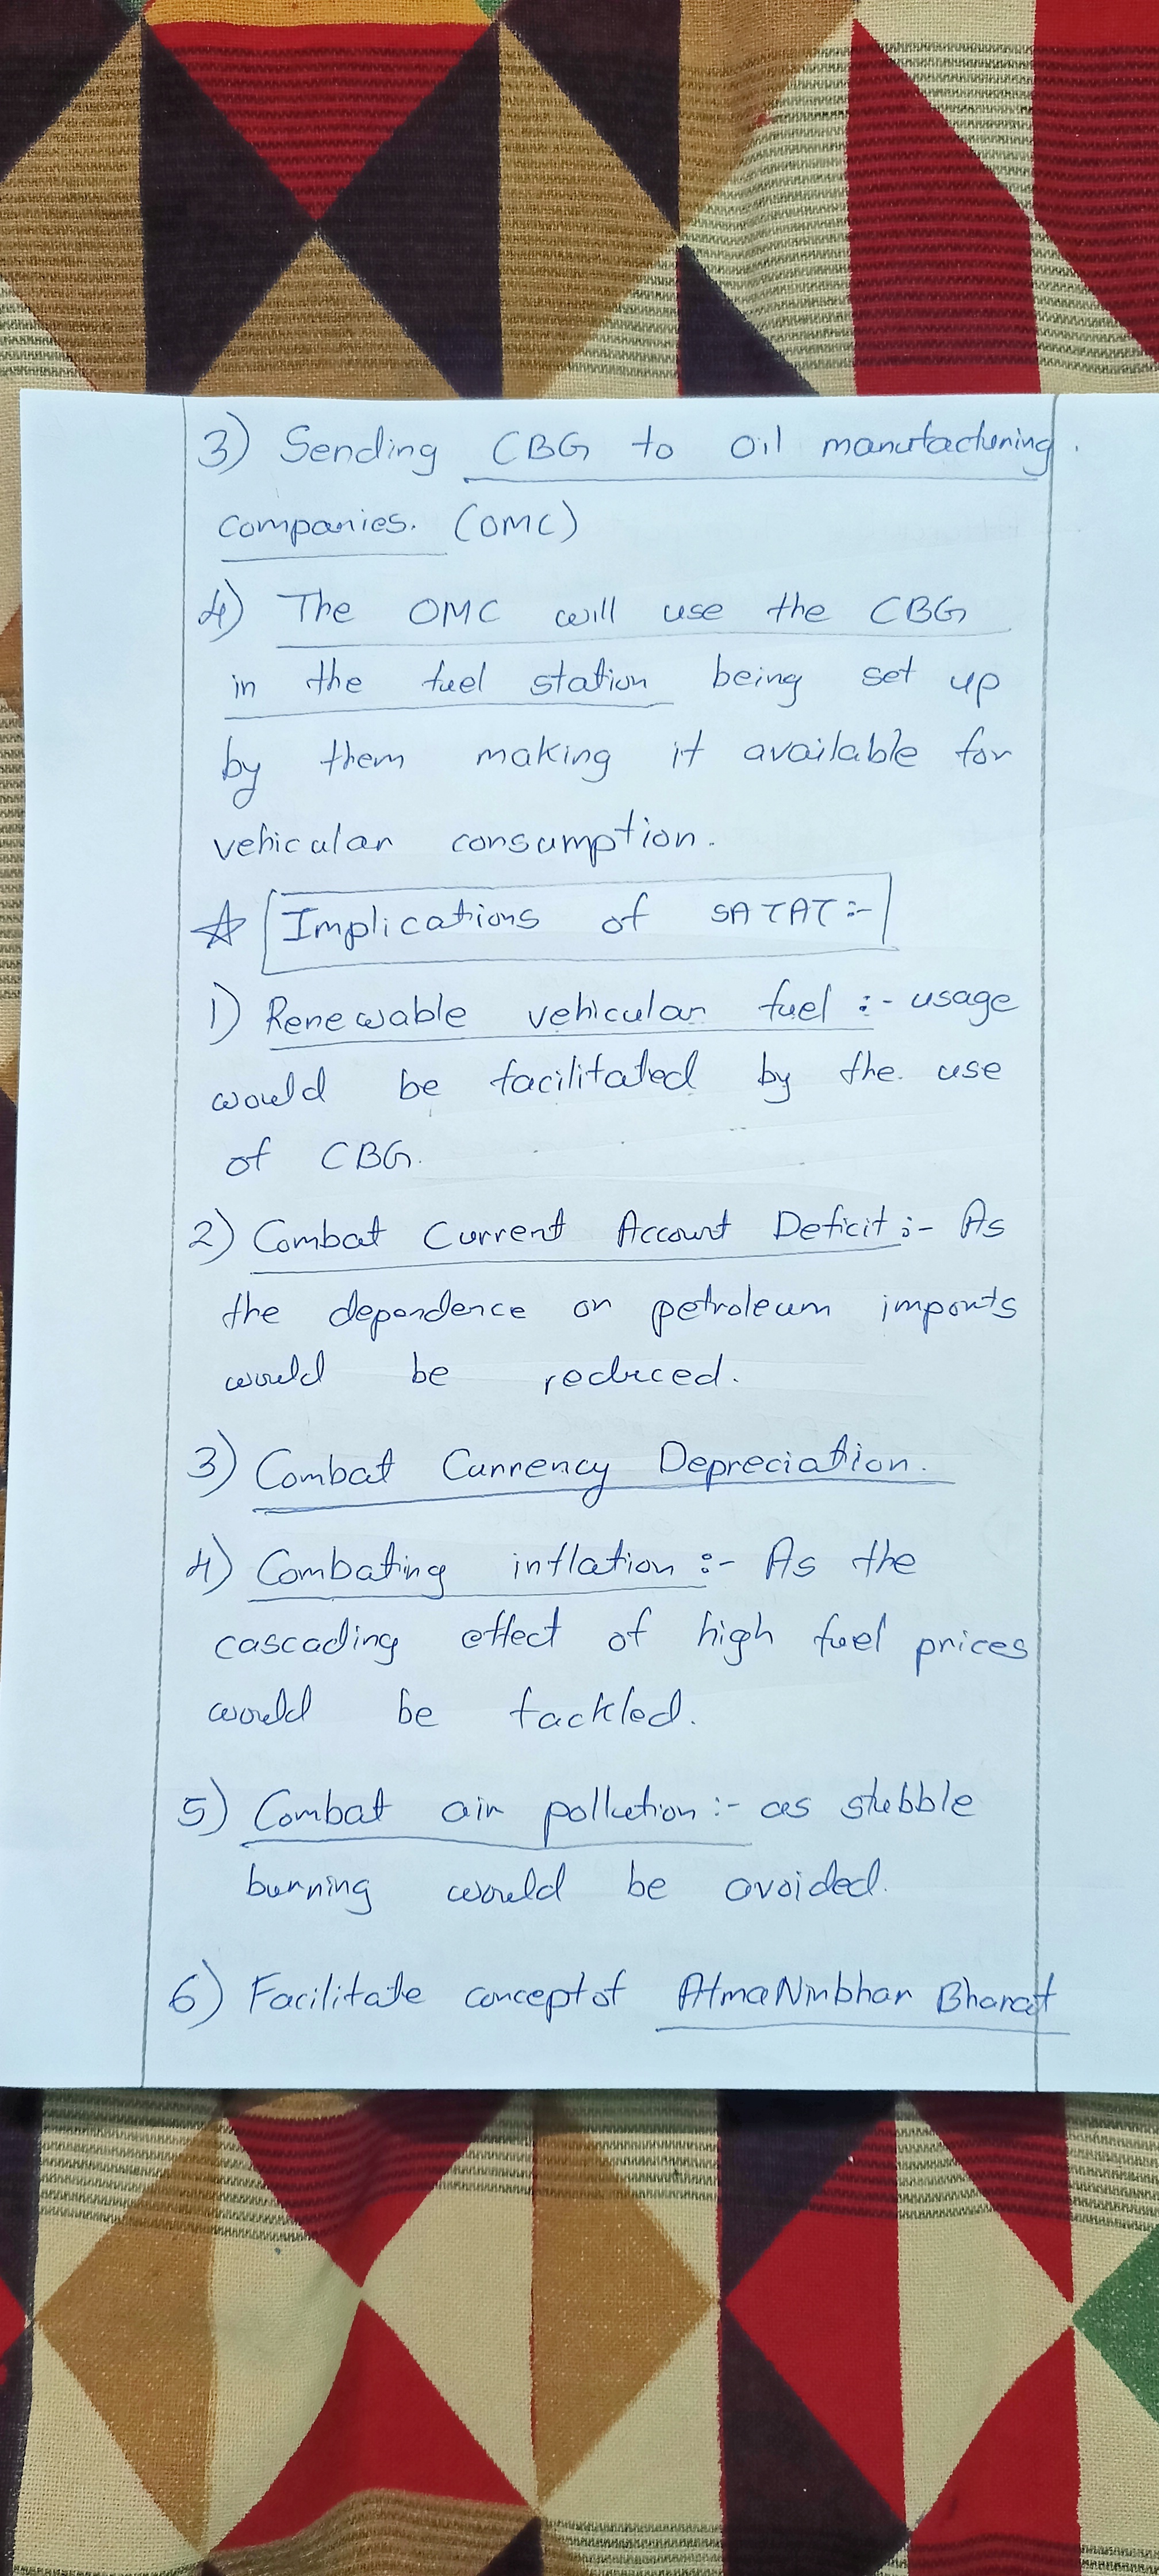 3) Sending CBG to Oil manufacturing
companies. (OMC)
4) The OMC will use the CBG
in the fuel station being set up
by them making it available for
vehicular consumption.
☆ Implications of SATAT :-
1) Renewable vehicular fuel :- usage
would be facilitated by the use
of CBG.
2) Combat Current Account Deficit :- As
the dependence on petroleum imports
would be reduced.
3) Combat Currency Depreciation.
4) Combating inflation :- As the
cascading effect of high fuel prices
would be tackled.
5) Combat air pollution :- as stubble
burning would be avoided.
6) Facilitate concept of AtmaNirbhar Bharat